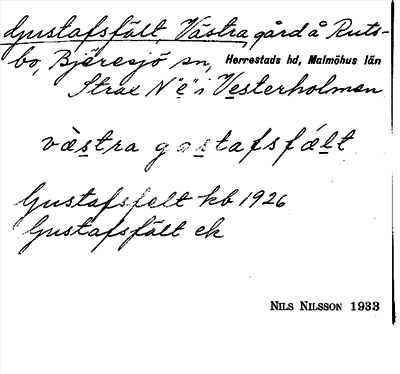 Gustafsfält, Västra gård å Ruts-
bo, Bjäresjö sn, Herrestads hd, Malmöhus län
Strax N "e" i Vesterholmen
västra gostafsfælt
Gustafsfelt kb 1926
Gustafsfält ek
NILS NILSSON 1933